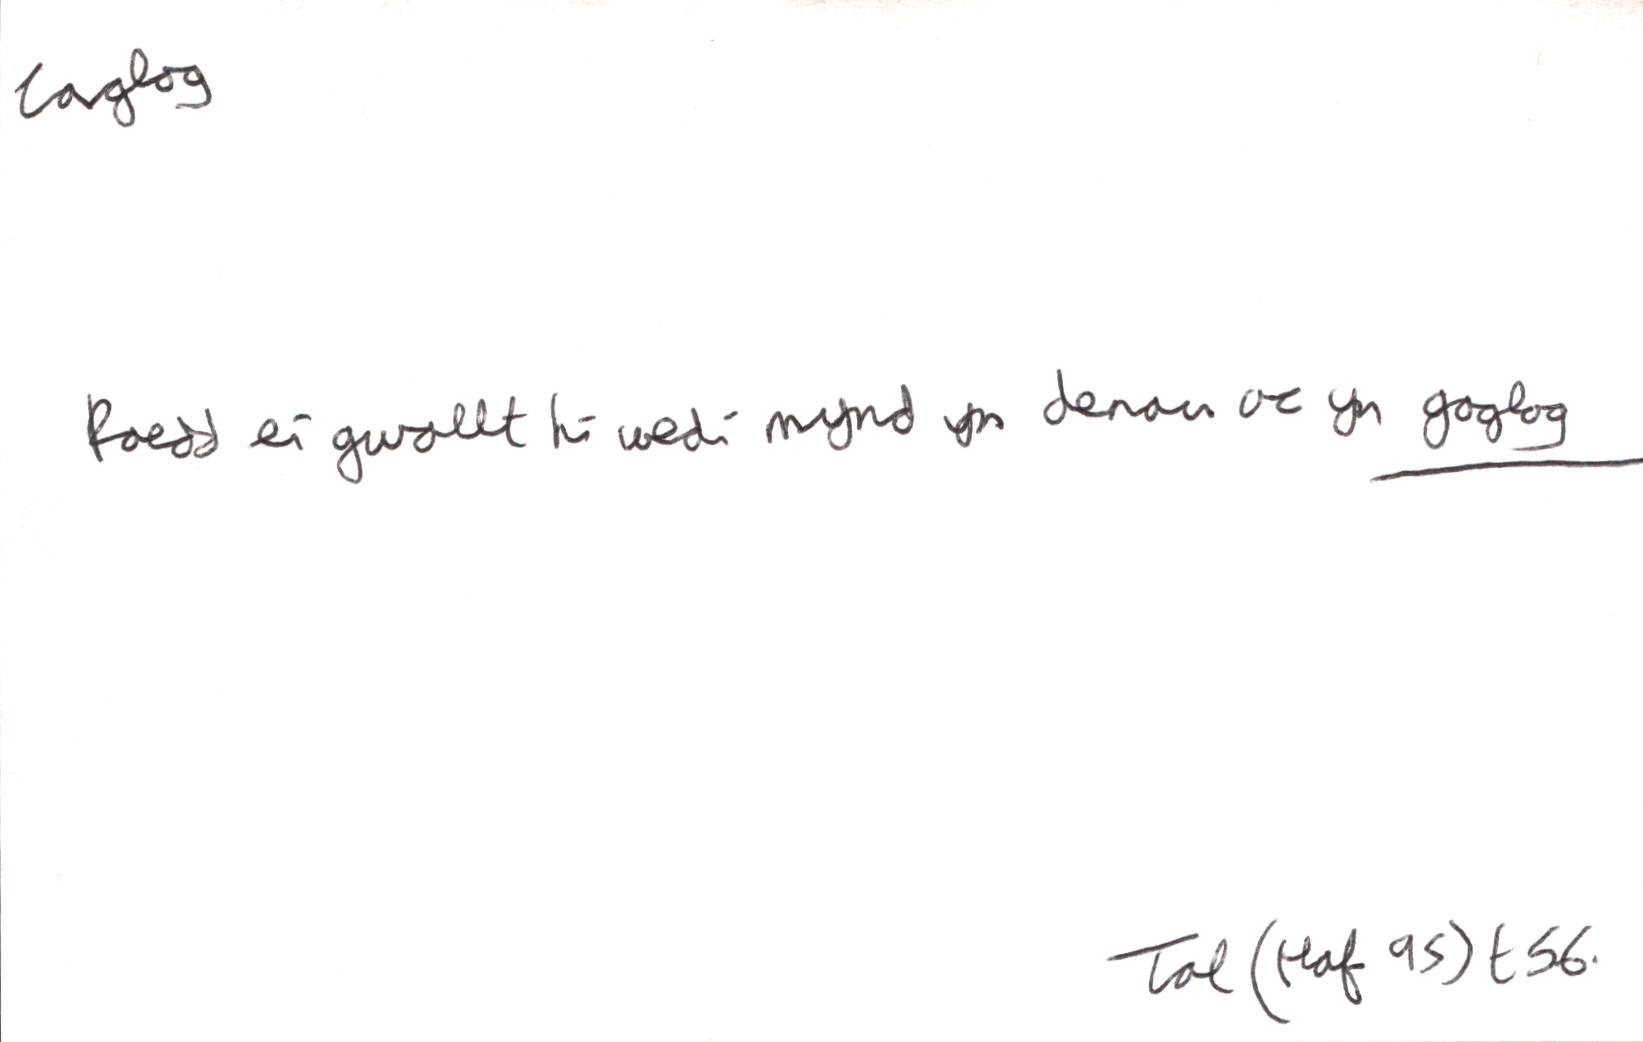 Caglog
Roedd ei gwallt hi wedi mynd yn denau ac yn gaglog
Tal (Haf 95) t 56.